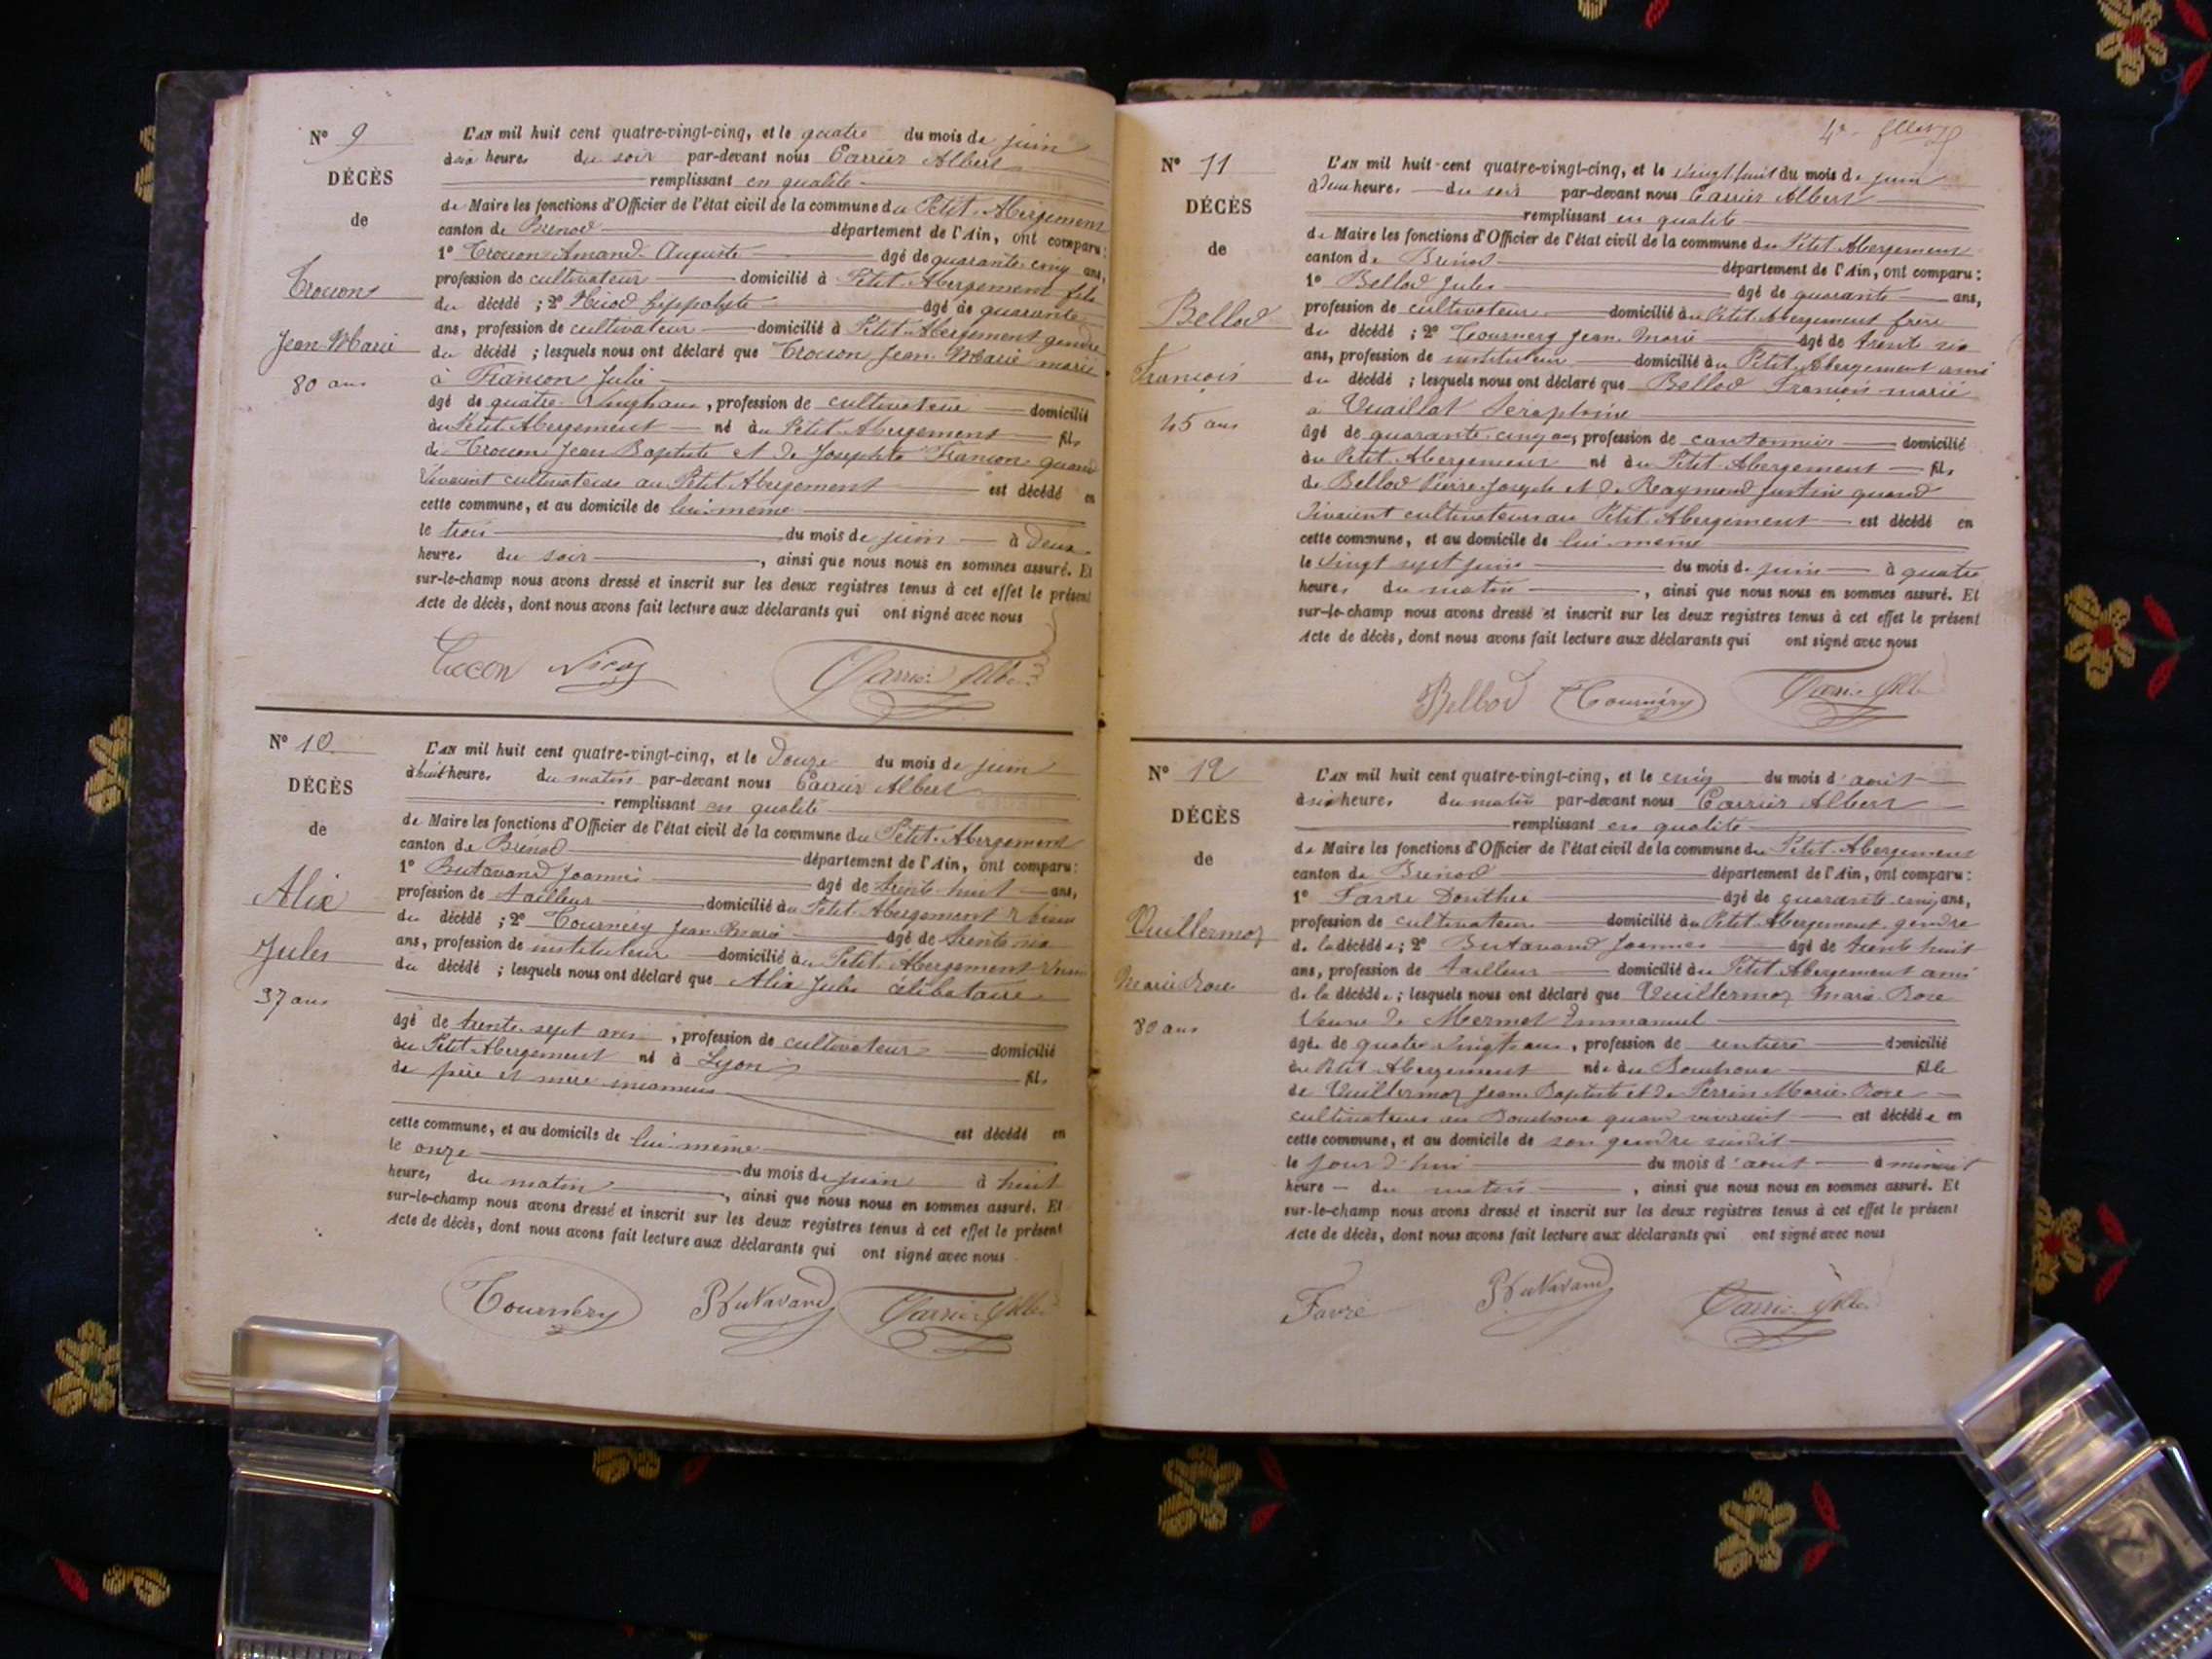 N° 9
DÉCÈS
de
Jean-Marie
80 ans
L'AN mil huit cent quatre-vingt-cinq, et le quatre du mois de juin
à six heures du soir par-devant nous Carrier Albert
remplissant en qualité
de Maire les fonctions d'Officier de l'état civil de la commune du Petit-Abergement
canton de Brenod département de l'Ain, ont comparu:
1° Amand Auguste âgé de quarante cinq ans,
profession de cultivateur domicilié à Petit-Abergement fils
du décédé; 2° hippolyte âgé de quarante
ans, profession de cultivateur domicilié à Petit-Abergement gendre
du décédé; lesquels nous ont déclaré que Jean-Marie marié
à Françon Julie
âgé de quatre-vingts ans, profession de cultivateur domicilié
au Petit Abergement né au Petit-Abergement fils
de Jean Baptiste et de Josephte Françon quand
vivaient cultivateurs au Petit Abergement est décédé en
cette commune, et au domicile de lui-même
le trois du mois de juin à deux
heures du soir, ainsi que nous nous en sommes assuré. Et
sur-le-champ nous avons dressé et inscrit sur les deux registres tenus à cet effet le présent
Acte de décès, dont nous avons fait lecture aux déclarants qui ont signé avec nous
Carrier Albert
N° 10
DÉCÈS
de
Alix
Jules
37 ans
L'AN mil huit cent quatre-vingt-cinq, et le douze du mois de juin
à huit heures du matin par-devant nous Carrier Albert
remplissant en qualité
de Maire les fonctions d'Officier de l'état civil de la commune du Petit-Abergement
canton de Brenod département de l'Ain, ont comparu:
1° Butavand Joannès âgé de trente-huit ans,
profession de tailleur domicilié au Petit-Abergement
du décédé; 2° Tournery Jean Marie âgé de trente six
ans, profession de instituteur domicilié au Petit-Abergement
du décédé; lesquels nous ont déclaré que Alix Jules célibataire
âgé de trente-sept ans, profession de cultivateur domicilié
au Petit Abergement né à Lyon fils
de père et mère inconnus
est décédé en
cette commune, et au domicile de lui-même
le onze du mois de juin à huit
heures du matin, ainsi que nous nous en sommes assuré. Et
sur-le-champ nous avons dressé et inscrit sur les deux registres tenus à cet effet le présent
Acte de décès, dont nous avons fait lecture aux déclarants qui ont signé avec nous
Tournery Butavand Carrier Albert
N° 11
DÉCÈS
de
Bellod
François
45 ans
L'AN mil huit cent quatre-vingt-cinq, et le vingt huit du mois de juin
à deux heures du soir par-devant nous Carrier Albert
remplissant en qualité
de Maire les fonctions d'Officier de l'état civil de la commune du Petit-Abergement
canton de Brenod département de l'Ain, ont comparu:
1° Bellod Jules âgé de quarante ans,
profession de cultivateur domicilié au Petit-Abergement frère
du décédé; 2° Tournery Jean Marie âgé de trente six
ans, profession de instituteur domicilié au Petit Abergement ami
du décédé; lesquels nous ont déclaré que Bellod François marié
à Vuaillat Séraphine
âgé de quarante-cinq ans, profession de cantonnier domicilié
au Petit-Abergement né au Petit-Abergement fils
de Bellod Pierre Joseph et de Raymond Justine quand
vivaient cultivateurs au Petit Abergement est décédé en
cette commune, et au domicile de lui-même
le vingt sept juin du mois de juin à quatre
heures du matin, ainsi que nous nous en sommes assuré. Et
sur-le-champ nous avons dressé et inscrit sur les deux registres tenus à cet effet le présent
Acte de décès, dont nous avons fait lecture aux déclarants qui ont signé avec nous
Bellod Tournery Carrier Alb
N° 12
DÉCÈS
de
Vuillermoz
Marie Rose
80 ans
L'AN mil huit cent quatre-vingt-cinq, et le cinq du mois d'août
à six heures du matin par-devant nous Carrier Albert
remplissant en qualité
de Maire les fonctions d'Officier de l'état civil de la commune du Petit-Abergement
canton de Brenod département de l'Ain, ont comparu:
1° Favre Donthée âgé de quarante-cinq ans,
profession de cultivateur domicilié au Petit Abergement gendre
de la décédée; 2° Butavand Joannès âgé de trente huit
ans, profession de tailleur domicilié au Petit Abergement ami
de la décédée; lesquels nous ont déclaré que Vuillermoz Marie Rose
veuve de Mermet Emmanuel
âgée de quatre vingts ans, profession de rentière domicilié
au Petit Abergement née au fille
de Vuillermoz Jean Baptiste et de Perrin Marie Rose
cultivateurs au quand vivaient est décédée en
cette commune, et au domicile de son gendre susdit
le jour d'hui du mois d'août à minuit
heure du matin, ainsi que nous nous en sommes assuré. Et
sur-le-champ nous avons dressé et inscrit sur les deux registres tenus à cet effet le présent
Acte de décès, dont nous avons fait lecture aux déclarants qui ont signé avec nous
Favre Butavand Carrier Alb